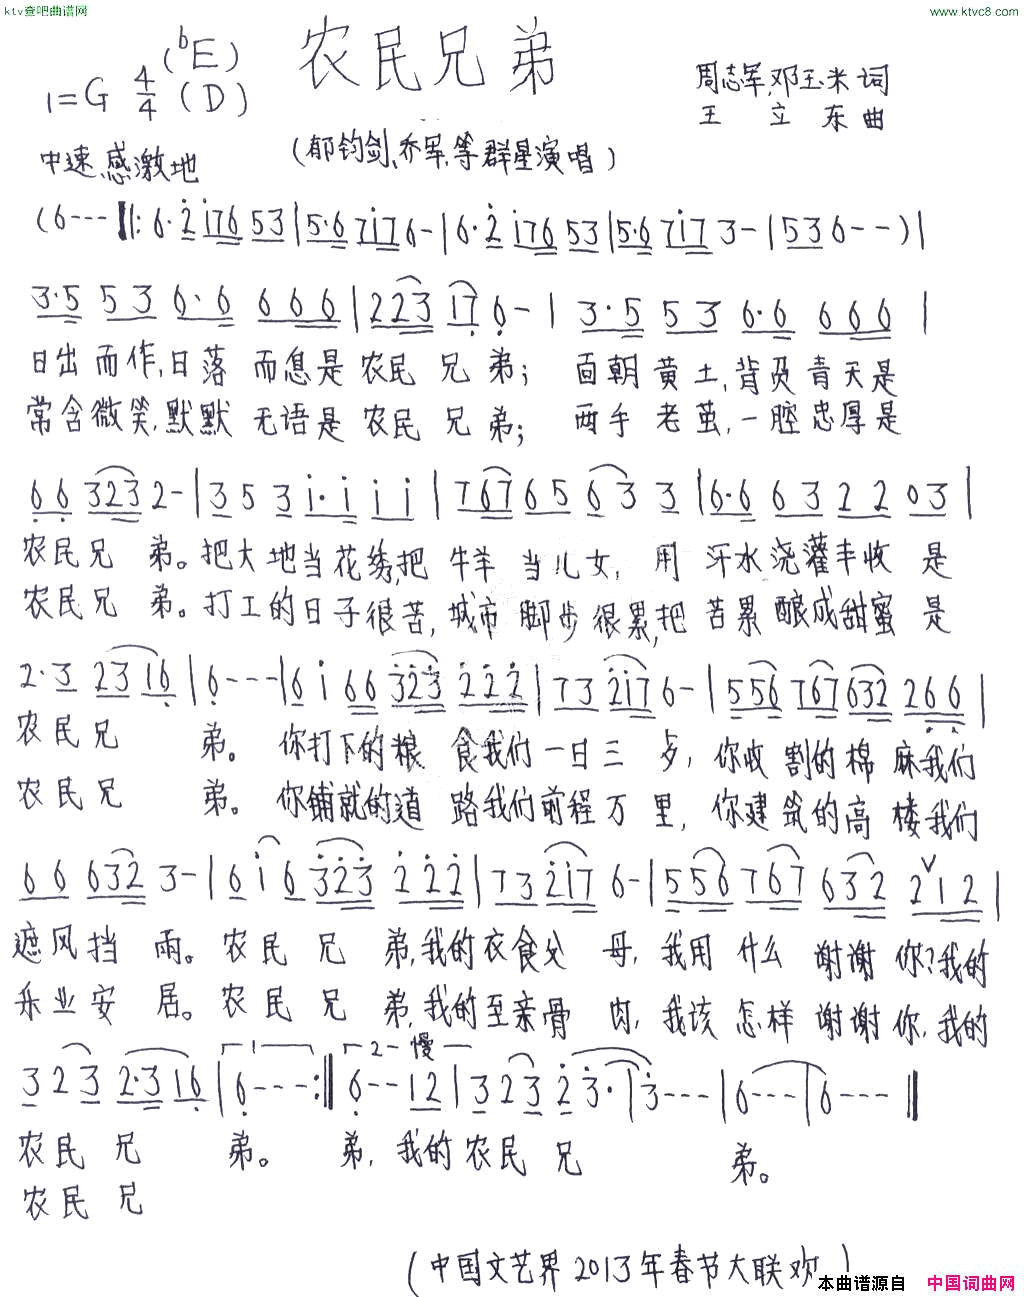 ktv查吧曲谱网
www.ktvc8.com
农民兄弟
1=G 4/4 (bE) (D)
周志军,邓玉米词
王立东曲
中速、感激地
(郁钧剑、乔军,等群星演唱)
(6--- ‖: 6·2̇ 1̇76 53 | 5·6 71̇7 6- | 6·2̇ 1̇76 53 | 5·6 71̇7 3- | 533 6--) |
3·5 53 6·6 666 | 223 17 6- | 3·5 53 6·6 666 |
日出而作,日落而息是农民兄弟; 面朝黄土,背负青天是
常含微笑,默默无语是农民兄弟; 两手老茧,一腔忠厚是
66 323 2- | 3 5 3 1̇·1̇ 1̇ 1̇ | 767 65 63 3 | 6·6 63 22 03 |
农民兄弟。把大地当花绣,把牛羊当儿女,用汗水浇灌丰收是
农民兄弟。打工的日子很苦,城市脚步很累,把苦累酿成甜蜜是
2·3 2316 | 6--- | 6 1̇ 66 3̇2̇3̇ 2̇2̇2̇ | 73 2̇1̇7 6- | 556 767 632 266 |
农民兄弟。你打下的粮食我们一日三岁,你收割的棉麻我们
农民兄弟。你铺就的道路我们前程万里,你建筑的高楼我们
66 632 3- | 6 1̇ 6 3̇2̇3̇ 2̇2̇2̇ | 73 2̇1̇7 6- | 556 767 632 2∨12 |
遮风挡雨。农民兄弟,我的衣食父母,我用什么谢谢你?我的
乐业安居。农民兄弟,我的至亲骨肉,我该怎样谢谢你,我的
323 2·3 16 | 1 6--- :‖ 2 慢 6-- 12 | 323 2̇ 3̇· | 3̇--- | 6--- | 6--- ‖
农民兄弟。弟,我的农民兄弟。
农民兄
(中国文艺界2013年春节大联欢)
本曲谱源自 中国词曲网